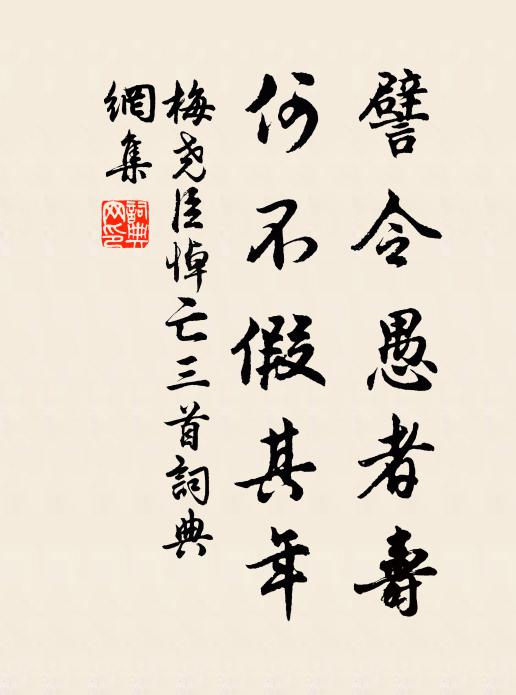 譬令愚者壽
何不假其年
梅尧臣悼亡三首詞典
網集
詞典
网印